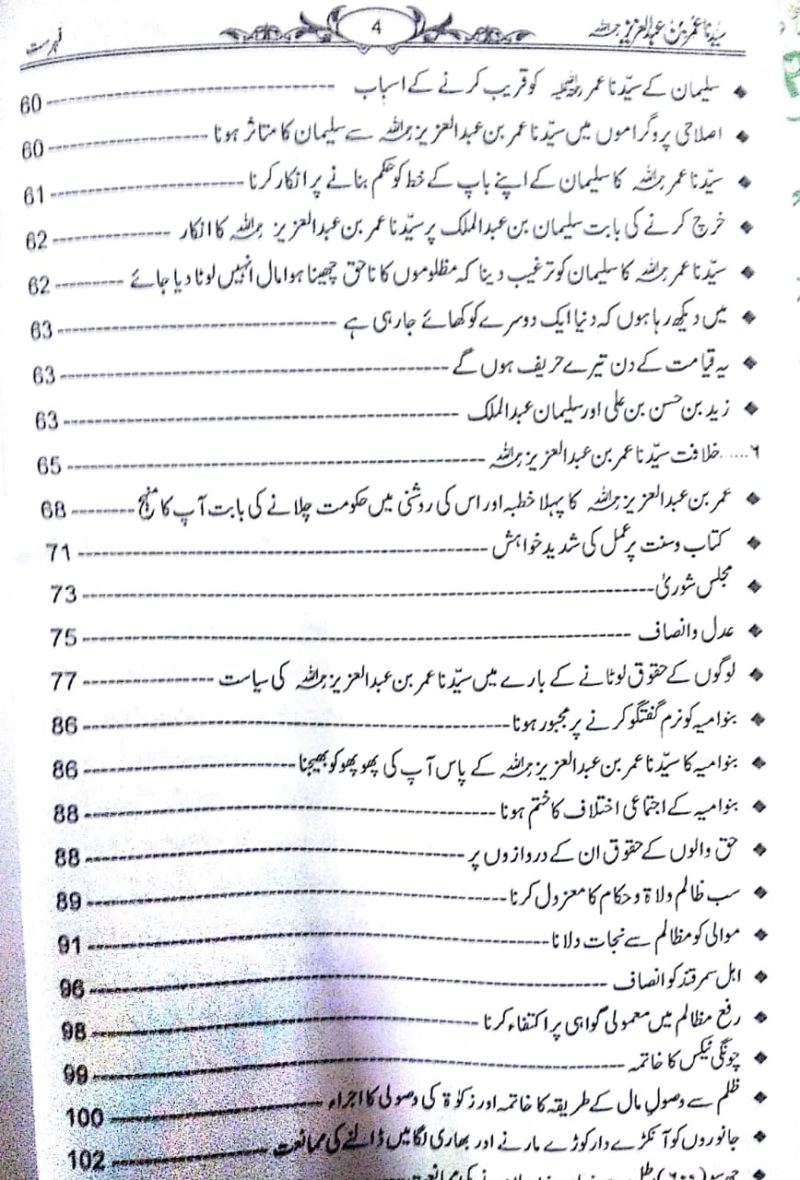 سیّدنا عمر بن عبدالعزیز رحمہ اللہ 4 فہرست
سلیمان کے سیّدنا عمر رحمہ اللہ کو قریب کرنے کے اسباب 60
اصلاحی پروگراموں میں سیّدنا عمر بن عبدالعزیز رحمہ اللہ سے سلیمان کا متاثر ہونا 60
سیّدنا عمر رحمہ اللہ کا سلیمان کے اپنے باپ کے خط کو حکم بنانے پر انکار کرنا 61
خرچ کرنے کی بابت سلیمان بن عبدالملک پر سیّدنا عمر بن عبدالعزیز رحمہ اللہ کا انکار 62
سیّدنا عمر رحمہ اللہ کا سلیمان کو ترغیب دینا کہ مظلوموں کا ناحق چھینا ہوا مال انہیں لوٹا دیا جائے 62
میں دیکھ رہا ہوں کہ دنیا ایک دوسرے کو کھائے جا رہی ہے 63
یہ قیامت کے دن تیرے حریف ہوں گے 63
زید بن حسن بن علی اور سلیمان عبدالملک 63
۶..... خلافت سیّدنا عمر بن عبدالعزیز رحمہ اللہ 65
عمر بن عبدالعزیز رحمہ اللہ کا پہلا خطبہ اور اس کی روشنی میں حکومت چلانے کی بابت آپ کا منہج 68
کتاب و سنت پر عمل کی شدید خواہش 71
مجلس شوریٰ 73
عدل و انصاف 75
لوگوں کے حقوق لوٹانے کے بارے میں سیّدنا عمر بن عبدالعزیز رحمہ اللہ کی سیاست 77
بنو امیہ کو نرم گفتگو کرنے پر مجبور ہونا 86
بنو امیہ کا سیّدنا عمر بن عبدالعزیز رحمہ اللہ کے پاس آپ کی پھوپھو کو بھیجنا 86
بنو امیہ کے اجتماعی اختلاف کا ختم ہونا 88
حق والوں کے حقوق ان کے دروازوں پر 88
سب ظالم ولاۃ و حکام کا معزول کرنا 89
موالی کو مظالم سے نجات دلانا 91
اہل سمرقند کو انصاف 96
رفع مظالم میں معمولی گواہی پر اکتفاء کرنا 98
چونگی ٹیکس کا خاتمہ 99
ظلم سے وصولِ مال کے طریقہ کا خاتمہ اور زکوٰۃ کی وصولی کا اجراء 100
جانوروں کو آنکڑے دار کوڑے مارنے اور بھاری لگامیں ڈالنے کی ممانعت 102